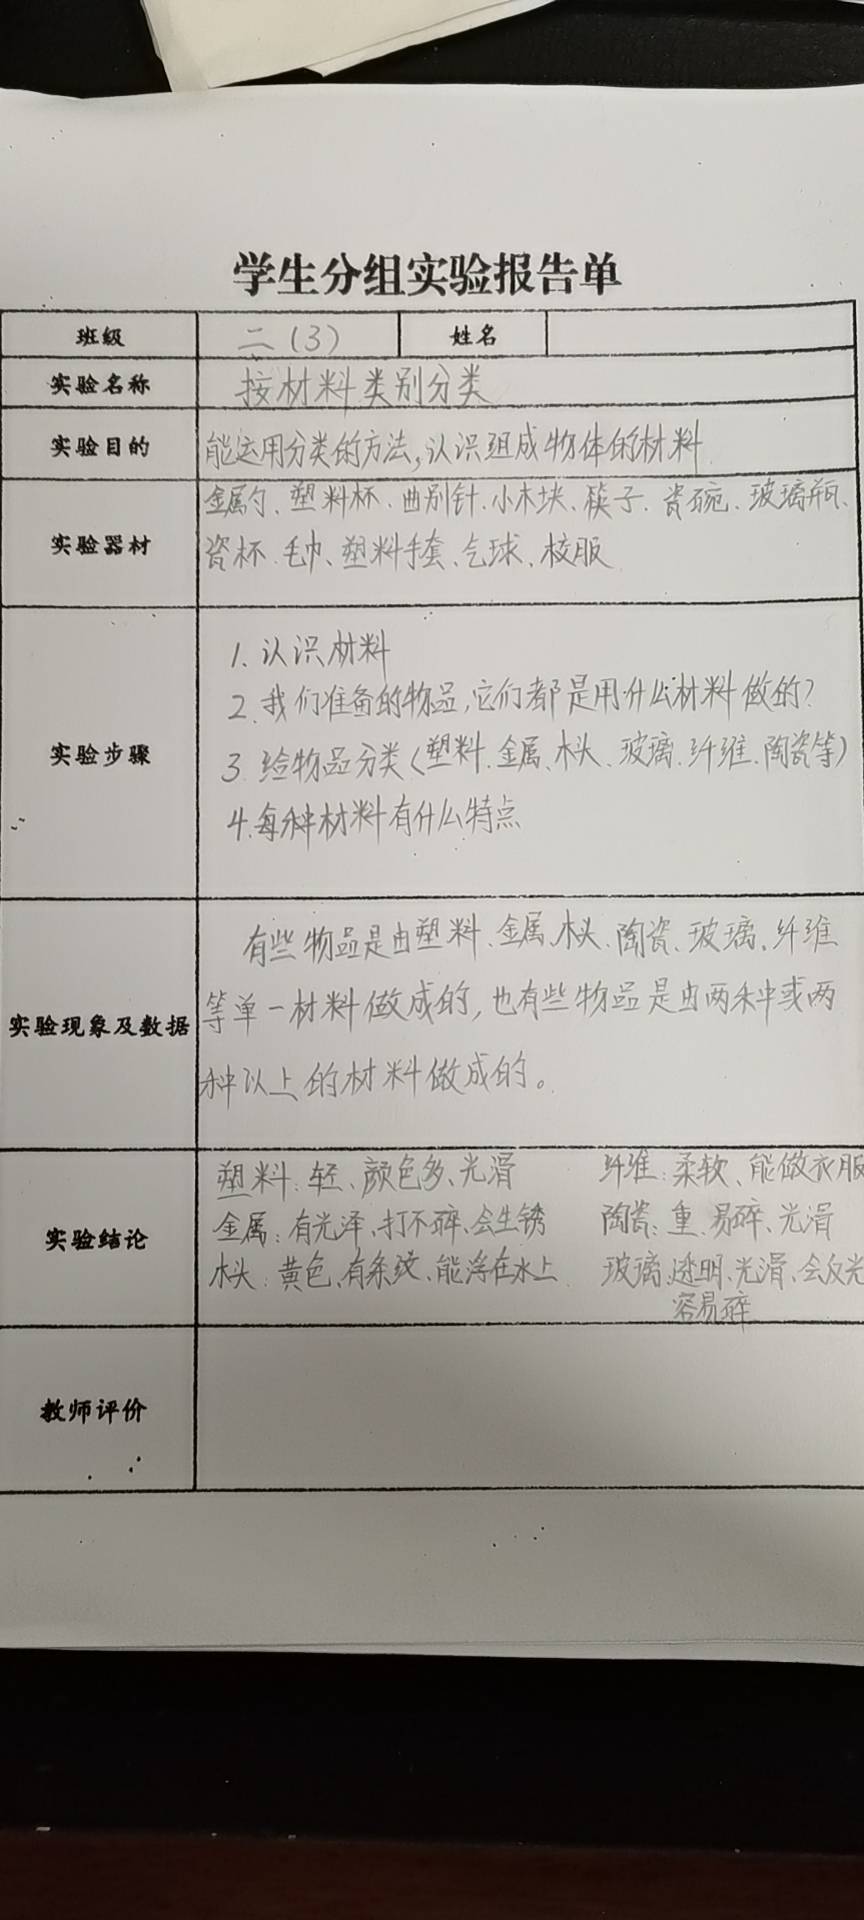 学生分组实验报告单
班级 二（3） 姓名
实验名称 按材料类别分类
实验目的 能运用分类的方法,认识组成物体的材料
实验器材 金属勺、塑料杯、曲别针、小木块、筷子、瓷碗、玻璃瓶、
瓷杯、毛巾、塑料手套、气球、校服
实验步骤
1.认识材料
2.我们准备的物品,它们都是用什么材料做的?
3.给物品分类(塑料、金属、木头、玻璃、纤维、陶瓷等)
4.每种材料有什么特点
实验现象及数据
有些物品是由塑料、金属、木头、陶瓷、玻璃、纤维
等单一材料做成的,也有些物品是由两种或两
种以上的材料做成的。
实验结论
塑料:轻、颜色多、光滑 纤维:柔软、能做衣服
金属:有光泽、打不碎、会生锈 陶瓷:重、易碎、光滑
木头:黄色、有条纹、能浮在水上 玻璃:透明、光滑、会反光
容易碎
教师评价